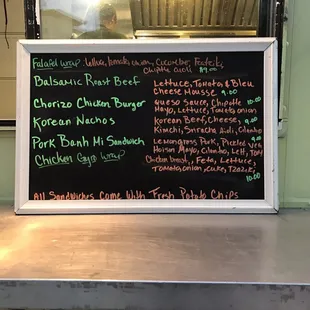 Falafel Wrap Lettuce, tomato, onion, Cucumber, Feta &
Chipotle aioli $9.00
Balsamic Roast Beef Lettuce, Tomato & Bleu
Cheese Mousse 9.00
Chorizo Chicken Burger Queso Sauce, Chipotle 10.00
Mayo, Lettuce, Tomato, onion
Korean Nachos Korean Beef, Cheese, 9.00
Kimchi, Sriracha Aioli, Cilantro
Pork Banh Mi Sandwich Lemongrass Pork, Pickled Veg
Hoison Mayo, Cilantro, Lett, Tom
Chicken Gyro Wrap Chicken breast, Feta, Lettuce,
Tomato, onion, cuke, Tzatziki
10.00
All Sandwiches Come With Fresh Potato Chips